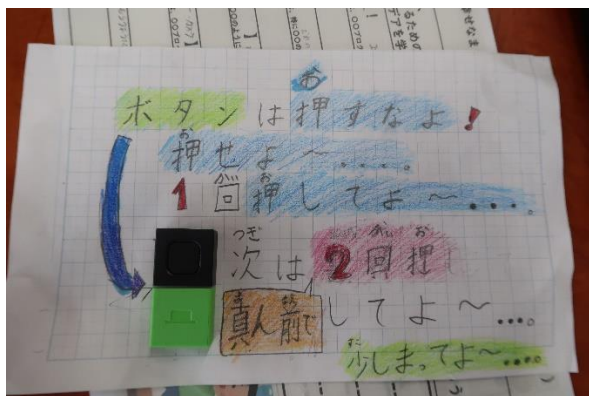 ボタンは押すなよ!
押せよ〜....。
1回押してよ〜....。
次は2回押
真ん前で
してよ〜....。
少しまってよ〜....。